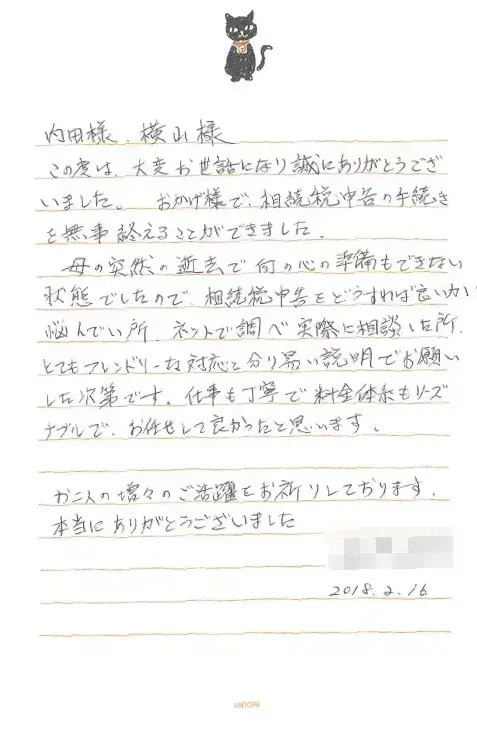 内田様、横山様
この度は、大変お世話になり誠にありがとうござ
いました。 おかげ様で、相続税申告の手続き
を無事終えることができました。
母の突然の逝去で何の心の準備もできない
状態でしたので、相続税申告をどうすれば良いか
悩んでい所、ネットで調べ実際に相談した所、
とてもフレンドリーな対応と分り易い説明でお願い
した次第です。仕事も丁寧で料金体系もリーズ
ナブルで、お任せして良かったと思います。
お二人の増々のご活躍をお祈りしております。
本当にありがとうございました
2018.2.16
MIDORI